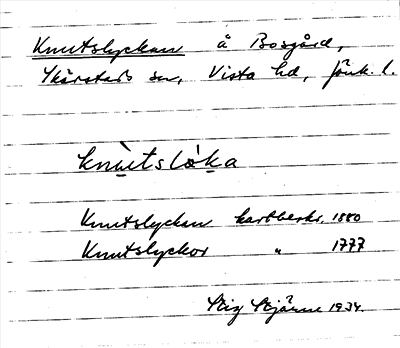 Knutslyckan å Bosgård,
Skärstads sn, Vista hd, Jönk. l.
knùtslò̀ka
Knutslyckan kartbeskr. 1880
Knutslyckor " 1777
Stig Stjärne 1934.